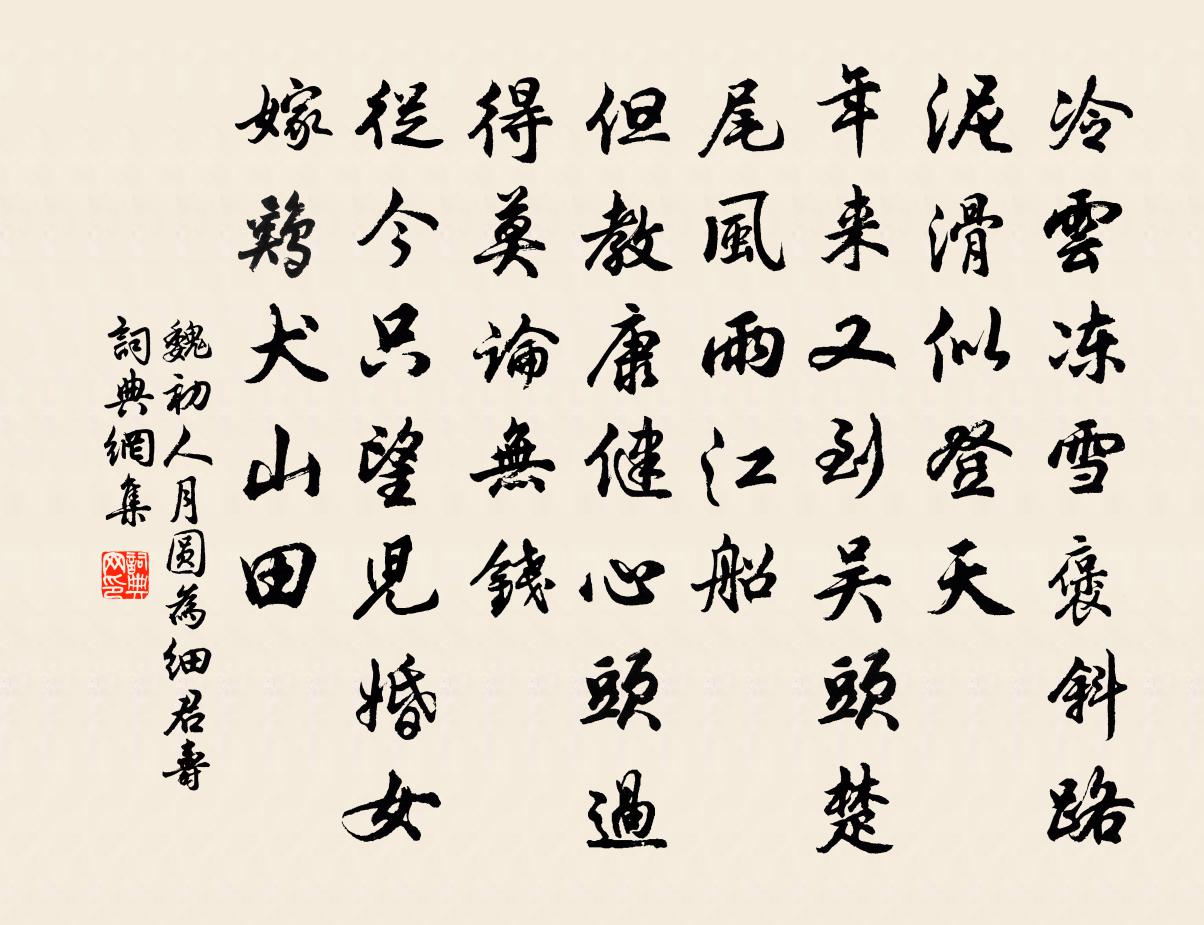 冷雲凍雪褒斜路
泥滑似登天
年来又到吴頭楚
尾風雨江船
但教康健心頭過
得莫論無錢
從今只望兒婚女
嫁鷄犬山田
魏初人月圆為细君壽
詞典網集
詞典网印